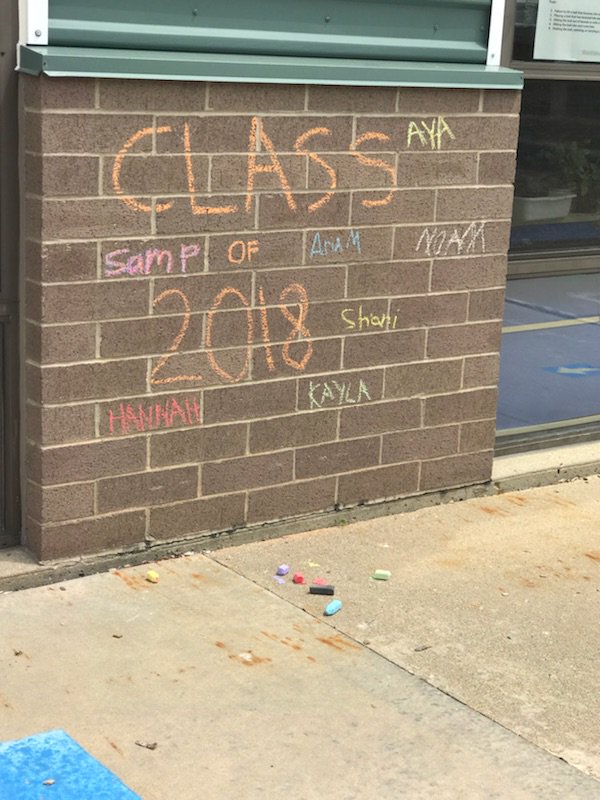 CLASS AYA
Samp OF Anam NOAM
2018 Shani
KAYLA
HANNAH